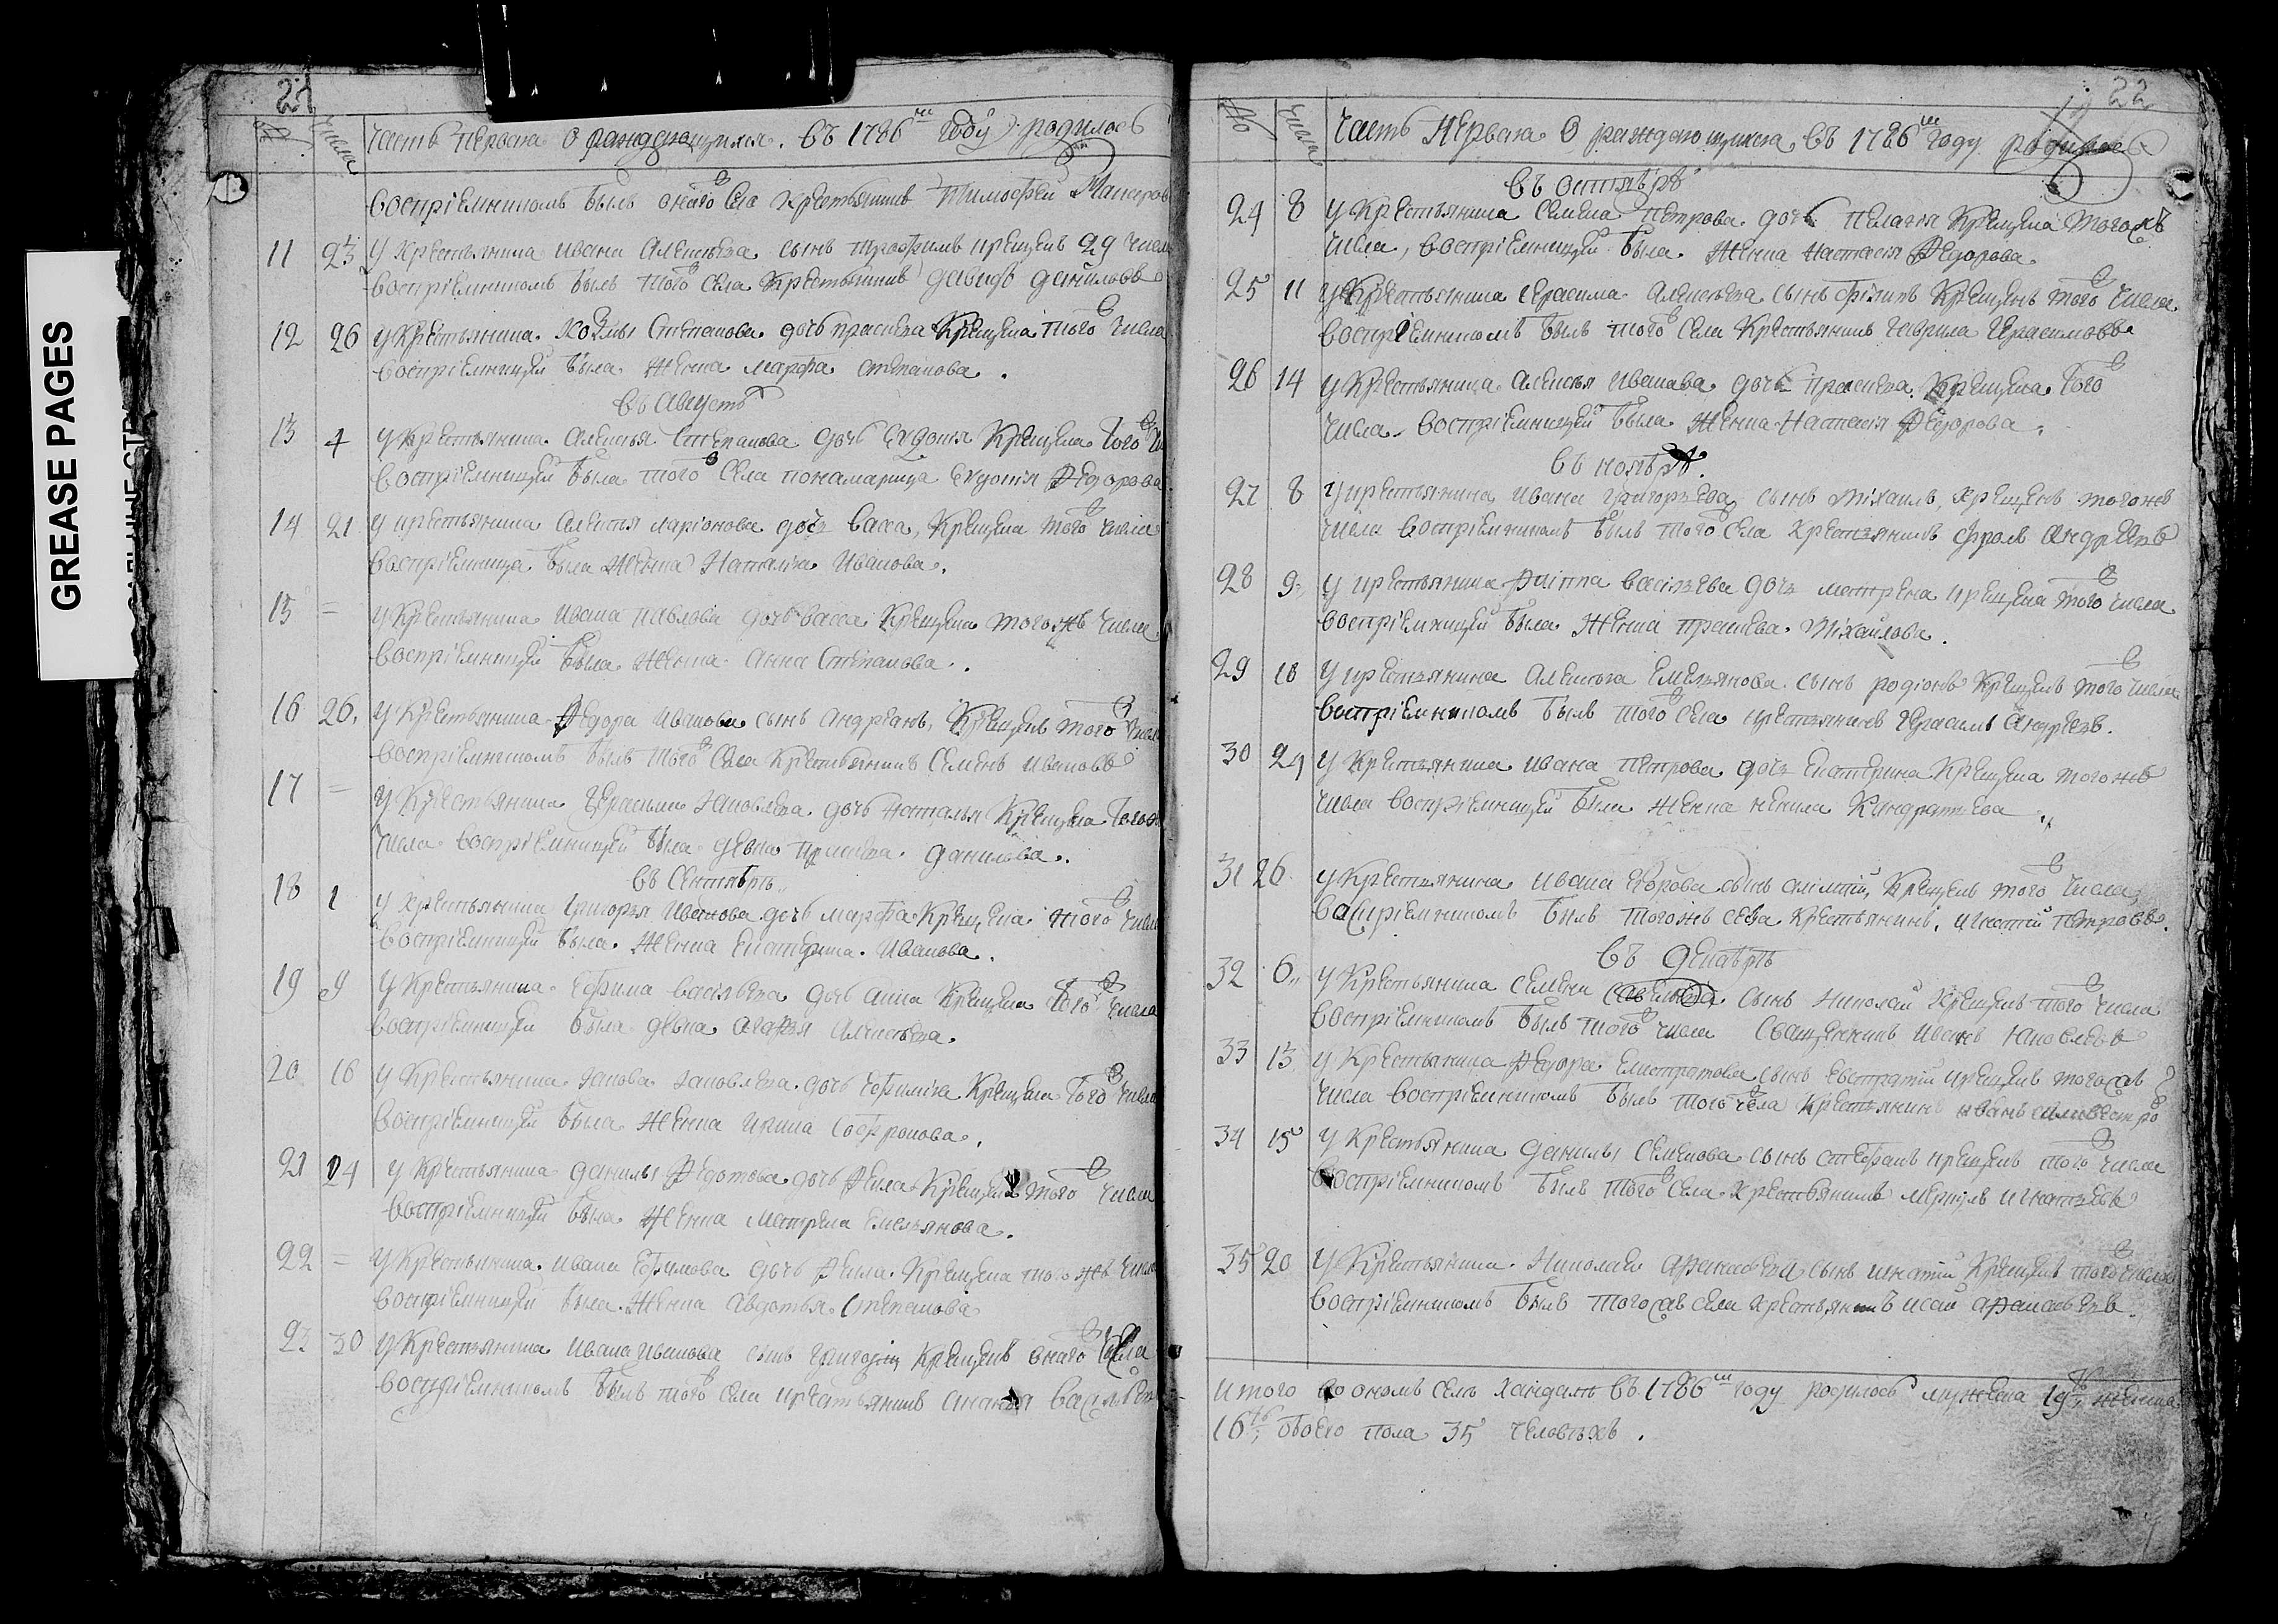 GREASE PAGES
21
№ Числа Часть Первая О раждающихся. въ 1786м году родилось
воспрїемникомъ былъ онаго села крестьянинъ Тимофей
11 23 У крестьянина Ивана Алексѣева сынъ Трофимъ крещенъ 29 числа
воспрїемникомъ былъ того села крестьянинъ давыдъ даниловъ
12 26 У крестьянина Козмы Степанова дочь праскева крещена того числа
воспрїемницей была Женка марфа степанова.
въ Августѣ
13 4 У крестьянина Алексея Степанова дочь Евдокїя Крещена того
воспрїемницей была того села понамарица Евдокїя Федорова
14 21 У крестьянина Алексея ларїонова дочь васса, крещена того числа
воспрїемница была Женка Наталїя Иванова.
15 = У крестьянина Ивана павлова дочь васса Крещена тогожъ числа
воспрїемницей была Женка Анна Степанова.
16 26. У крестьянина Федора Иванова сынъ Андрїанъ, Крещенъ того числа
воспрїемникомъ былъ того села крестьянинъ Семенъ Ивановъ
17 = У крестьянина Герасима Яковлева дочь Наталья Крещена
числа воспрїемницей была девка праскева данилова.
въ Сентябрѣ
18 1 У крестьянина Григорья Иванова дочь марфа Крещена того числа
воспрїемницей была Женка Екатерина Иванова.
19 9 У крестьянина Ефима васильева дочь Анна Крещена того числа
воспрїемницей была девка агафья Алексѣева.
20 16 У крестьянина Якова Яковлева дочь Ефимїя Крещена того числа
воспрїемницей была Женка Ирина Софронова.
21 24 У крестьянина данилы Федотова дочь Фекла Крещена того числа
воспрїемницей была Женка Матрена Емельянова.
22 = У крестьянина Ивана Ефимова дочь Фекла Крещена тогожъ числа
воспрїемницей была Женка Авдотья Степанова
23 30 У крестьянина Ивана Иванова сынъ Григорей Крещенъ онаго числа
воспрїемникомъ былъ того села крестьянинъ
22
№ Числа Часть Первая О раждающихся, въ 1786м году родилось
въ октябрѣ
24 8 У крестьянина Семена Петрова дочь Пелагїя Крещена тогожъ
числа, воспрїемницей была Женка Настасїя Федорова.
25 11 У крестьянина Герасима Алексѣева сынъ филипъ Крещенъ того числа
воспрїемникомъ былъ того села крестьянинъ Гаврила Герасимовъ
26 14 У крестьянина Алексья Иванова дочь праскева Крещена того
числа воспрїемницей была Женка Настасїя Федорова.
въ ноябрѣ.
27 8 У крестьянина Ивана Григорьева сынъ михаилъ, крещенъ тогожъ
числа воспрїемникомъ былъ того села крестьянинъ фролъ Андреевъ
28 9. У крестьянина васильева дочь матрена крещена того числа
воспрїемницей была Женка праскева Михайлова.
29 18 У крестьянина Алексѣя Емельянова сынъ родїонъ крещенъ того числа
воспрїемникомъ былъ того села крестьянинъ Герасимъ Андреевъ.
30 24 У крестьянина Ивана Петрова дочь Екатерина Крещена тогожъ
числа воспрїемницей была Женка ненила Кандратьева
31 26 У крестьянина Ивана Егорова сынъ алимпїй, Крещенъ того числа,
воспрїемникомъ былъ тогожъ села Крестьянинъ, игнатїй петровъ.
въ декабрѣ
32 6. У крестьянина Семена Савельева сынъ Николай крещенъ того числа
воспрїемникомъ былъ того числа Священникъ Иванъ Яковлевъ
33 13 У крестьянина Федора Елистратова сынъ Евстратїй крещенъ тогожъ
числа воспрїемникомъ былъ того села крестьянинъ иванъ
34 15 У крестьянина Данилы Семенова сынъ стефанъ крещенъ того числа
воспрїемникомъ былъ того села крестьянинъ меркулъ игнатьевъ
35 20 У крестьянина Николая Афанасьева сынъ игнатїй Крещенъ того числа
воспрїемникомъ былъ тогожъ села крестьянинъ исай афанасьевъ.
Итого во ономъ селѣ въ 1786м году родилось мужеска 19, женска
16ть, обоего пола 35 человѣкъ.